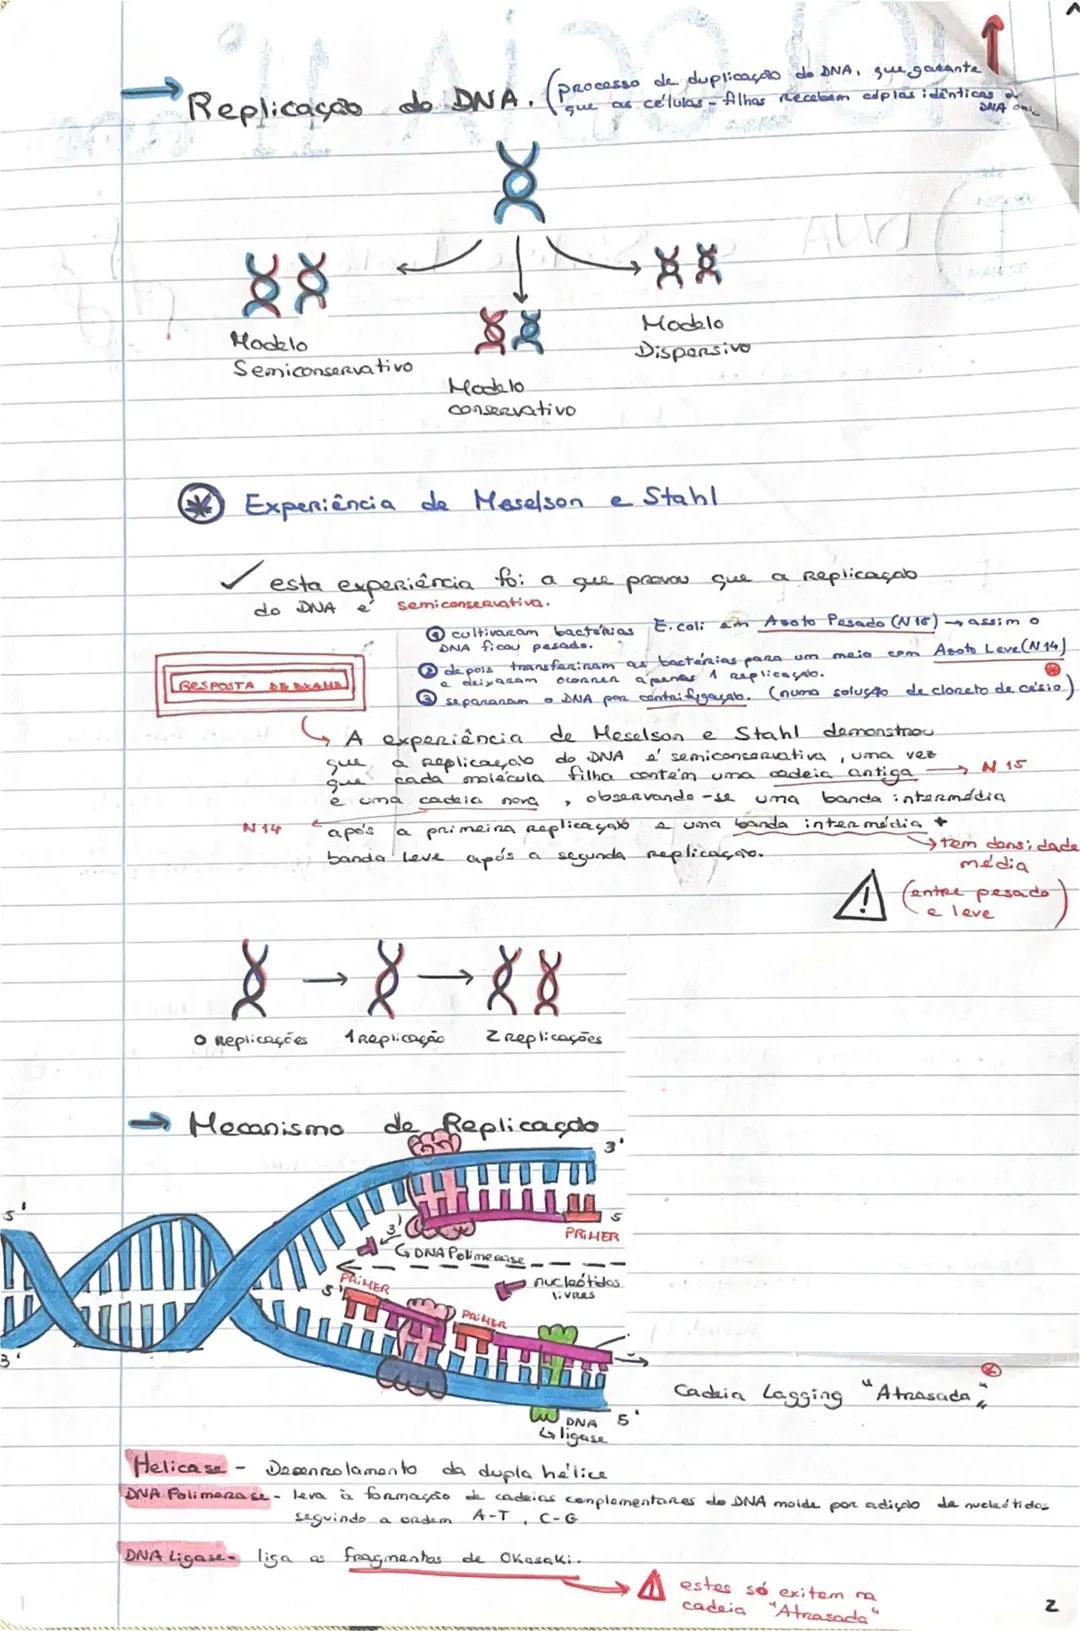 Replicação do DNA. (processo de duplicação do DNA, que garante
que as células-filhas recebam cópias idênticas
DNA
Modelo
Semiconservativo
Modelo
conservativo
Modelo
Dispersivo
Experiência de Meselson e Stahl
✓ esta experiência foi a que provou que a Replicação
do DNA é semiconservativa.
① cultivaram bactérias E.coli em Azoto Pesado (N15) → assim o
DNA ficou pesado.
② depois transferiram as bactérias para um meio com Azoto Leve (N14)
e deixaram ocorrer apenas 1 replicação.
③ separaram o DNA por centrifugação. (numa solução de cloreto de césio)
RESPOSTA DE EXAME
A experiência de Meselson e Stahl demonstrou
que a Replicação do DNA é semiconservativa, uma vez
que cada molécula filha contém uma cadeia antiga → N15
e uma cadeia nova, observando-se uma banda intermédia
N14
após a primeira Replicação e uma banda intermédia +
banda leve após a segunda Replicação.
tem densidade
média
(entre pesado
e leve)
0 Replicações
1 Replicação
2 Replicações
→ Mecanismo de Replicação
3'
5'
5
PRIMER
3'
DNA Polimerase
nucleótidos
livres
PRIMER
5'
PRIMER
3'
Cadeia Lagging "Atrasada"
DNA
ligase
5'
Helicase - Desenrolamento da dupla hélice
DNA Polimerase - leva à formação de cadeias complementares do DNA molde por adição de nucleótidos
seguindo a ordem A-T, C-G
DNA Ligase - liga os fragmentos de Okasaki.
estes só exitem na
cadeia "Atrasada"
2